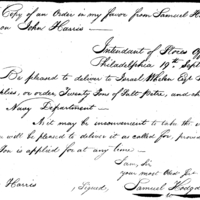 Copy of an Order in my favor from Samuel H
on John Harris —
Intendant of Stores Of
Philadelphia 19th Sept
Be pleased to deliver to Israel Whelen Esq
plies, or order Twenty Tons of Salt petre, and ch
Navy Department —
As it may be inconvenient to take the w
will be pleased to deliver it as called for, provid
Ton is applied for at any time —
I am, Sir
your most Obed
Harris
Signed, Samuel Hodgd